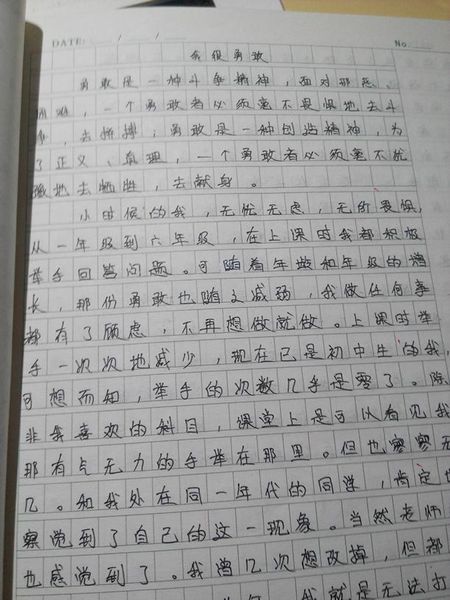 DATE: / /
No.
我很勇敢
勇敢是一种斗争精神，面对邪恶、
，一个勇敢者必须毫不畏惧地去斗
争，去拼搏；勇敢是一种创造精神，为
了正义、真理，一个勇敢者必须毫不犹
豫地去牺牲，去献身。
小时候的我，无忧无虑，无所畏惧，
从一年级到六年级，在上课时我都积极
举手回答问题。可随着年龄和年级的增
长，那份勇敢也随之减弱，我做任何事
都有了顾虑，不再想做就做。上课时举
手一次次地减少，现在已是初中生的我，
可想而知，举手的次数几乎是零了。除
非我喜欢的科目，课堂上是可以看见我
那有点无力的手举在那里。但也寥寥无
几。和我处在同一年代的同学，肯定也
察觉到了自己的这一现象。当然老师
也感觉到了。我曾几次想改掉，但都
我就是无法打